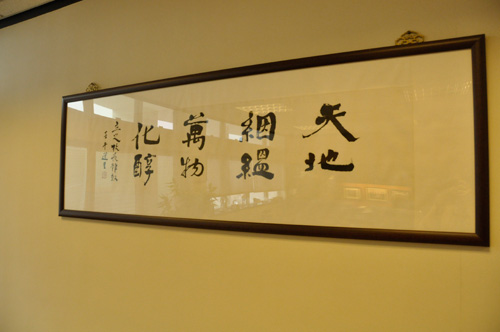 天地
絪緼
萬物
化醇